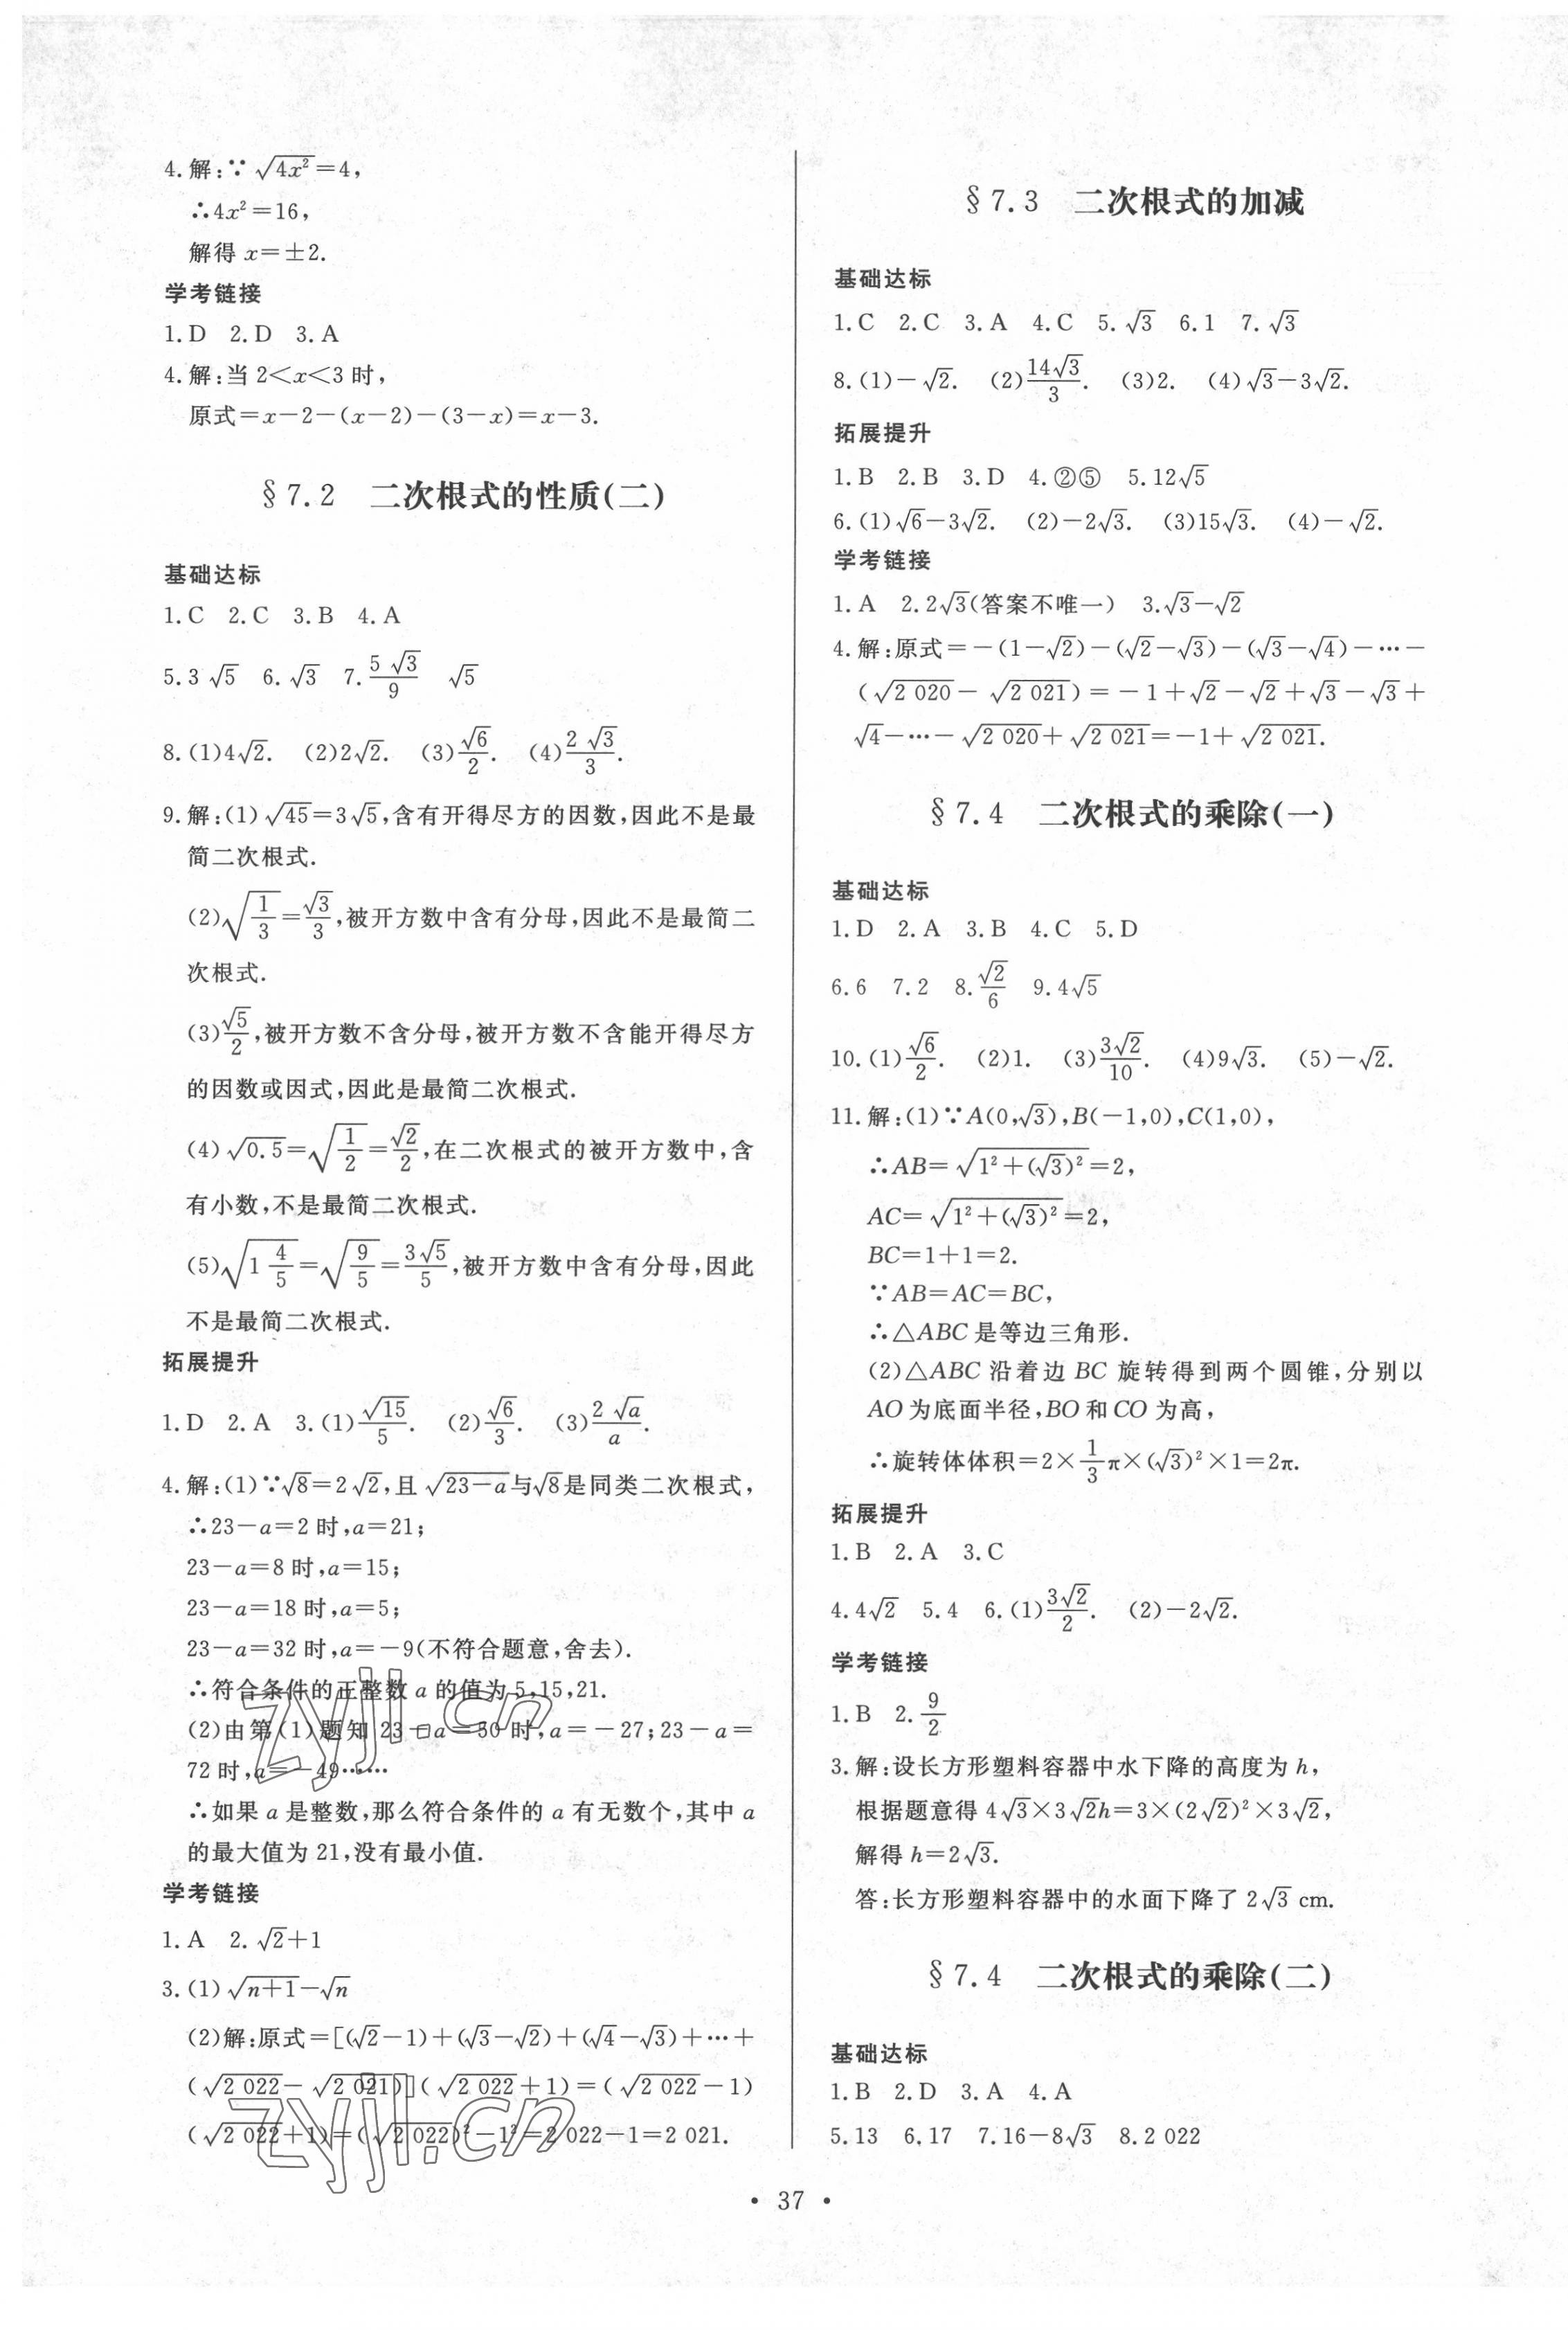 4.解:∵ √(4x²)=4,
∴4x²=16,
解得 x=±2.
学考链接
1.D 2.D 3.A
4.解:当 2<x<3 时,
原式=x-2-(x-2)-(3-x)=x-3.
§7.2 二次根式的性质(二)
基础达标
1.C 2.C 3.B 4.A
5.3√5 6.√3 7.5√3/9 √5
8.(1)4√2. (2)2√2. (3)√6/2. (4)2√3/3.
9.解:(1)√45=3√5,含有开得尽方的因数,因此不是最
简二次根式.
(2)√(1/3)=√3/3,被开方数中含有分母,因此不是最简二
次根式.
(3)√5/2,被开方数不含分母,被开方数不含能开得尽方
的因数或因式,因此是最简二次根式.
(4)√0.5=√(1/2)=√2/2,在二次根式的被开方数中,含
有小数,不是最简二次根式.
(5)√(1 4/5)=√(9/5)=3√5/5,被开方数中含有分母,因此
不是最简二次根式.
拓展提升
1.D 2.A 3.(1)√15/5. (2)√6/3. (3)2√a/a.
4.解:(1)∵√8=2√2,且√(23-a)与√8是同类二次根式,
∴23-a=2 时,a=21;
23-a=8 时,a=15;
23-a=18 时,a=5;
23-a=32 时,a=-9(不符合题意,舍去).
∴符合条件的正整数 a 的值为 5,15,21.
(2)由第(1)题知 23-a=50 时,a=-27;23-a=
72 时,a=-49……
∴如果 a 是整数,那么符合条件的 a 有无数个,其中 a
的最大值为 21,没有最小值.
学考链接
1.A 2.√2+1
3.(1)√(n+1)-√n
(2)解:原式=[(√2-1)+(√3-√2)+(√4-√3)+…+
(√2 022-√2 021)](√2 022+1)=(√2 022-1)
(√2 022+1)=(√2 022)²-1²=2 022-1=2 021.
§7.3 二次根式的加减
基础达标
1.C 2.C 3.A 4.C 5.√3 6.1 7.√3
8.(1)-√2. (2)14√3/3. (3)2. (4)√3-3√2.
拓展提升
1.B 2.B 3.D 4.②⑤ 5.12√5
6.(1)√6-3√2. (2)-2√3. (3)15√3. (4)-√2.
学考链接
1.A 2.2√3(答案不唯一) 3.√3-√2
4.解:原式=-(1-√2)-(√2-√3)-(√3-√4)-…-
(√2 020-√2 021)=-1+√2-√2+√3-√3+
√4-…-√2 020+√2 021=-1+√2 021.
§7.4 二次根式的乘除(一)
基础达标
1.D 2.A 3.B 4.C 5.D
6.6 7.2 8.√2/6 9.4√5
10.(1)√6/2. (2)1. (3)3√2/10. (4)9√3. (5)-√2.
11.解:(1)∵A(0,√3),B(-1,0),C(1,0),
∴AB=√(1²+(√3)²)=2,
AC=√(1²+(√3)²)=2,
BC=1+1=2.
∵AB=AC=BC,
∴△ABC 是等边三角形.
(2)△ABC 沿着边 BC 旋转得到两个圆锥,分别以
AO 为底面半径,BO 和 CO 为高,
∴旋转体体积=2×1/3π×(√3)²×1=2π.
拓展提升
1.B 2.A 3.C
4.4√2 5.4 6.(1)3√2/2. (2)-2√2.
学考链接
1.B 2.9/2
3.解:设长方形塑料容器中水下降的高度为 h,
根据题意得 4√3×3√2h=3×(2√2)²×3√2,
解得 h=2√3.
答:长方形塑料容器中的水面下降了 2√3 cm.
§7.4 二次根式的乘除(二)
基础达标
1.B 2.D 3.A 4.A
5.13 6.17 7.16-8√3 8.2 022
• 37 •
zyjl.cn
zyjl.cn